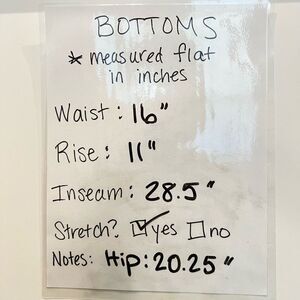 BOTTOMS
* measured flat
in inches
Waist: 16"
Rise: 11"
Inseam: 28.5"
Stretch? ☑yes ☐no
Notes: Hip: 20.25"